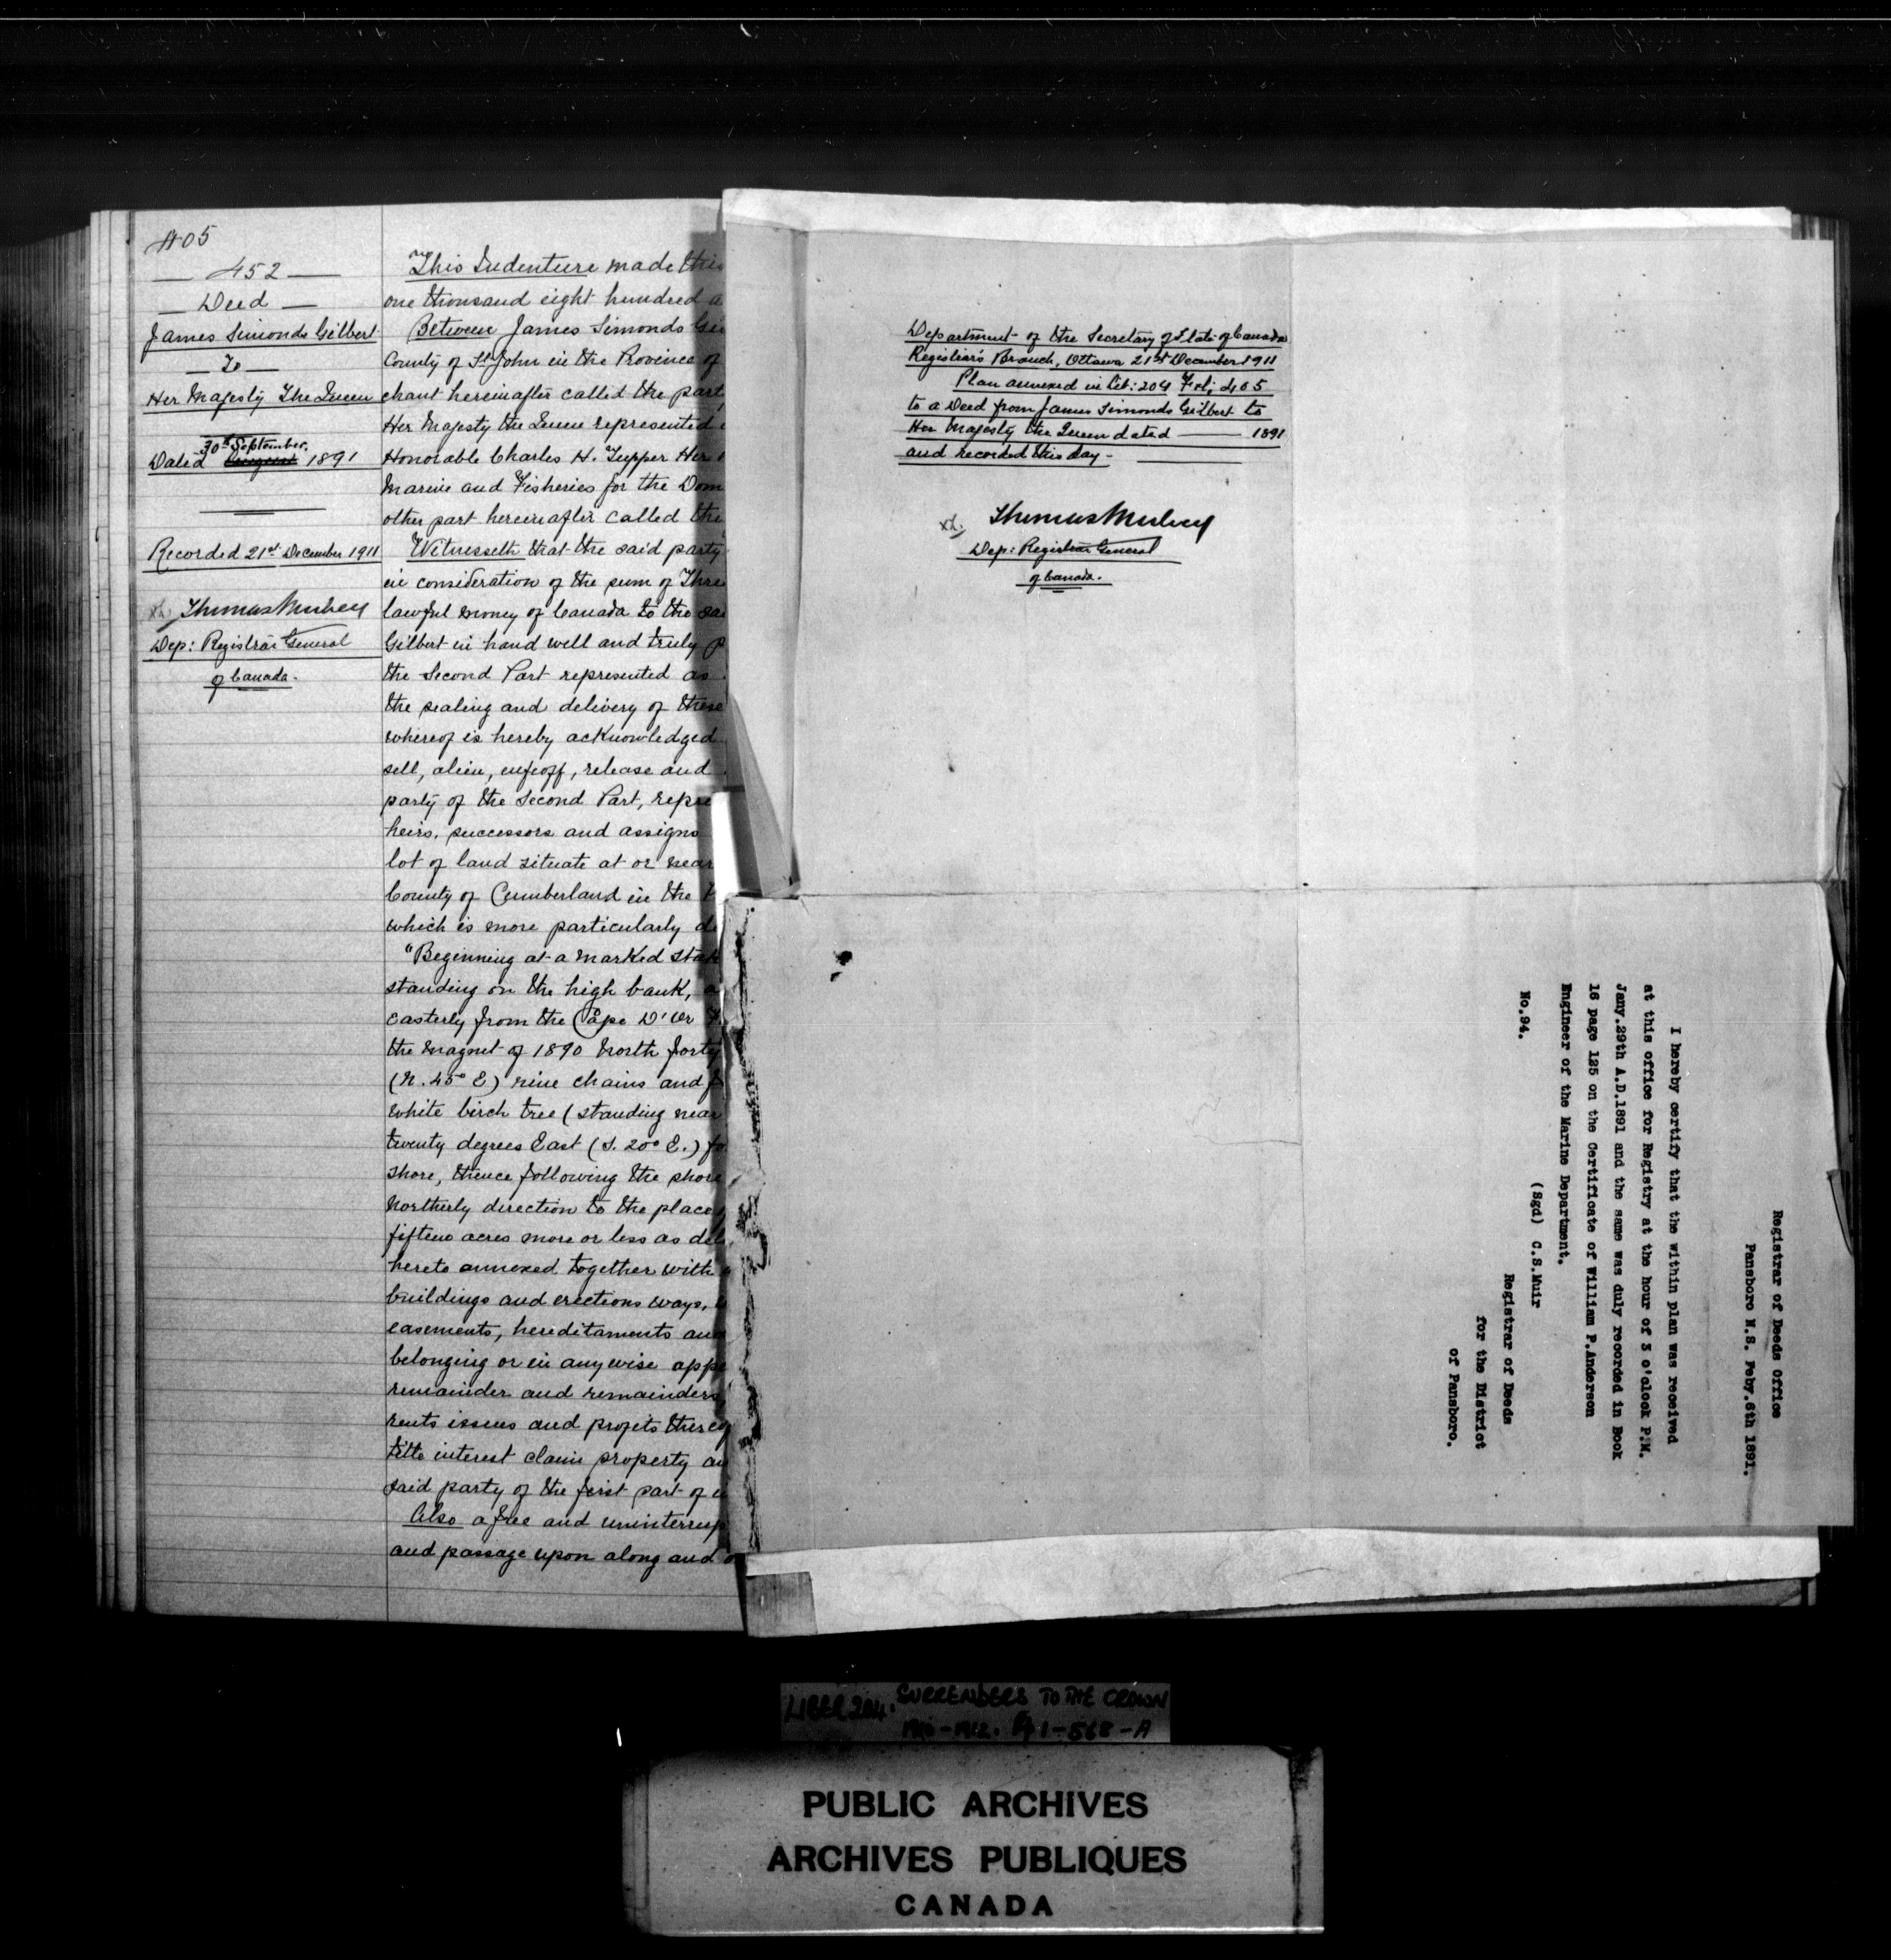 405
452
Deed
James Simonds Gilbert
To
Her Majesty The Queen
30th September
Dated August 1891
Recorded 21st December 1911
Thomas Mulvey
Dep: Registrar General
of Canada.
This Indenture made this
one thousand eight hundred a
Between James Simonds Gil
County of St John in the Province of
chant hereinafter called the part
Her Majesty the Queen represented
Honorable Charles H. Tupper Her
Marine and Fisheries for the Dom
other part hereinafter called the
Witnesseth that the said party
in consideration of the sum of Thre
lawful money of Canada to the sa
Gilbert in hand well and truly p
the Second Part represented as
the sealing and delivery of these
whereof is hereby acknowledged
sell, alien, enfeoff, release and
party of the Second Part, repre
heirs, successors and assigns
lot of land situate at or near
County of Cumberland in the
which is more particularly de
"Beginning at a marked stak
standing on the high bank, a
easterly from the Cape D'Or
the magnet of 1890 North forty
(N. 45° E) nine chains and f
white birch tree (standing near
twenty degrees East (S. 20° E.) fo
shore, thence following the shore
Northerly direction to the place
fifteen acres more or less as del
hereto annexed together with
buildings and erections ways,
easements, hereditaments and
belonging or in anywise appe
remainder and remainders
rents issues and profits thereof
title interest claim property an
said party of the first part of
Also a free and uninterrup
and passage upon along and o
Department of the Secretary of State of Canada
Registrar's Branch, Ottawa 21st December 1911
Plan annexed in Lib: 204 Fol: 405
to a Deed from James Simonds Gilbert to
Her Majesty the Queen dated ——— 1891
and recorded this day -
Thomas Mulvey
Dep: Registrar General
of Canada.
Registrar of Deeds Office
Pansboro N.S. Feby.6th 1891.
I hereby certify that the within plan was received
at this office for Registry at the hour of 3 o'clock P.M.
Jany.29th A.D.1891 and the same was duly recorded in Book
16 page 125 on the Certificate of William P.Anderson
Engineer of the Marine Department.
(Sgd) C.S.Muir
No.94.
Registrar of Deeds
for the District
of Pansboro.
LIBER 204. SURRENDERS TO THE CROWN
1910-1912. Pp 1-568-A
PUBLIC ARCHIVES
ARCHIVES PUBLIQUES
CANADA